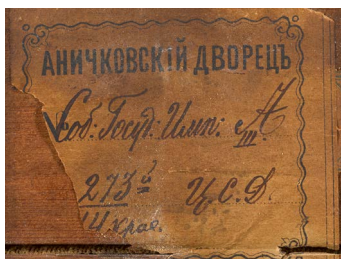 АНИЧКОВСКІЙ ДВОРЕЦЪ
Соб: Госуд: Имп: А III.
273 й Ц.С.Д.
14 крас.